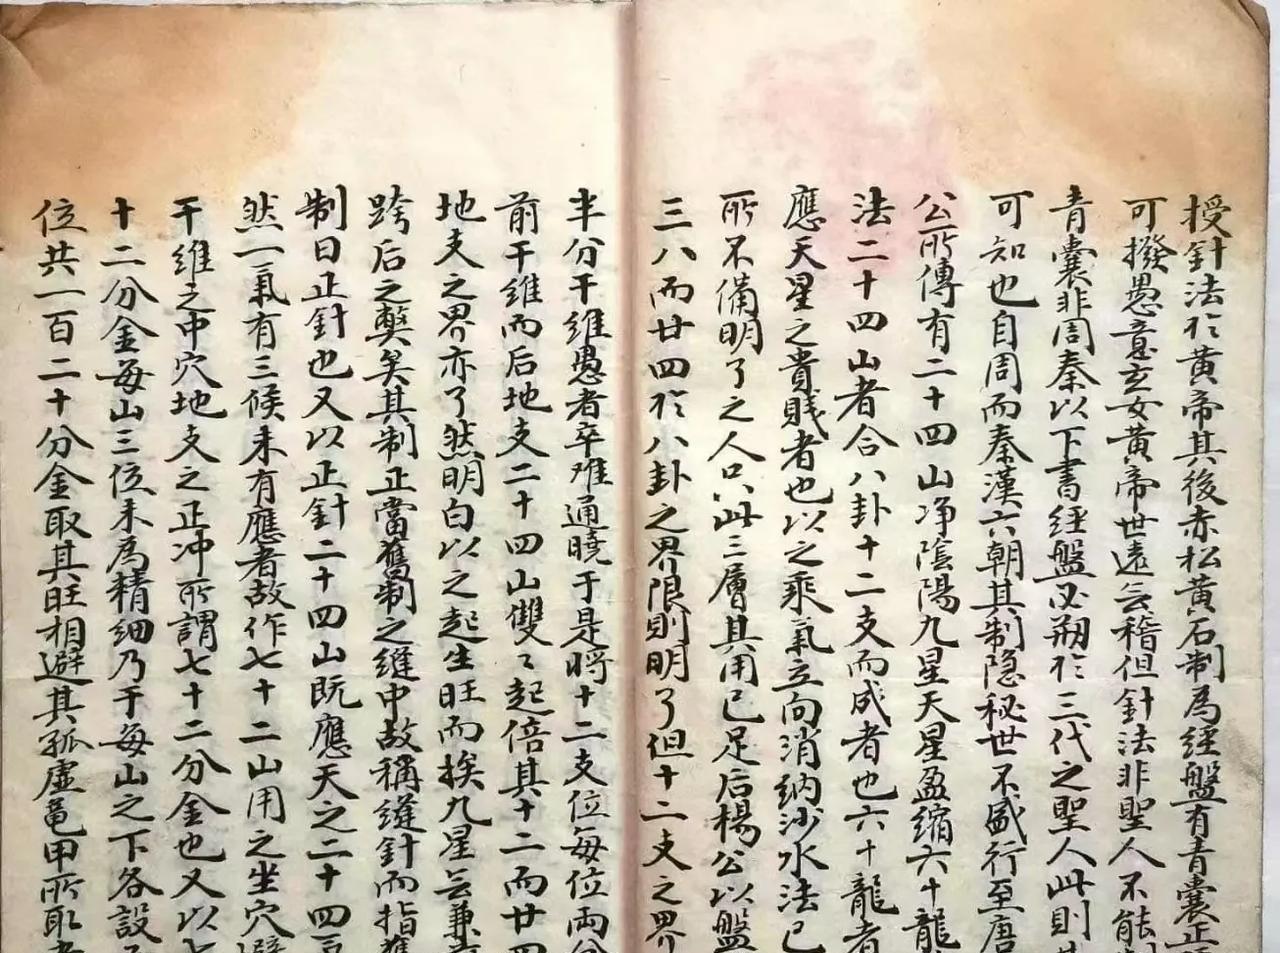 授針法於黄帝其後赤松黄石制為經盤有青囊正
可撥愚意玄女黄帝世遠云稽但針法非聖人不能
青囊非周秦以下書經盤必刱於三代之聖人此則
可知也自周而秦漢六朝其制隐秘世不盛行至唐
公所傳有二十四山净陰陽九星天星盈縮六十龍
法二十四山者合八卦十二支而成者也六十龍者
應天星之貴賤者也以之乘氣立向消納沙水法已
所不俻明了之人只此三層其用已足后楊公以盤
三八而廿四於八卦之界限則明了但十二支之界
半分干維愚者卒难通曉于是将十二支位每位両分
前干維而后地支二十四山雙〻起倍其十二而廿四
地支之界亦了然明白以之起生旺而挨九星云兼
跨后之獘矣其制正當舊制之缝中故稱缝針而指舊
制曰正針也又以正針二十四山既應天之二十四
然一氣有三候未有應者故作七十二山用之坐穴
干维之中穴地支之正冲所謂七十二分金也又以七
十二分金每山三位未為精细乃于每山之下各設
位共一百二十分金取其旺相避其孤虚龟甲所取者